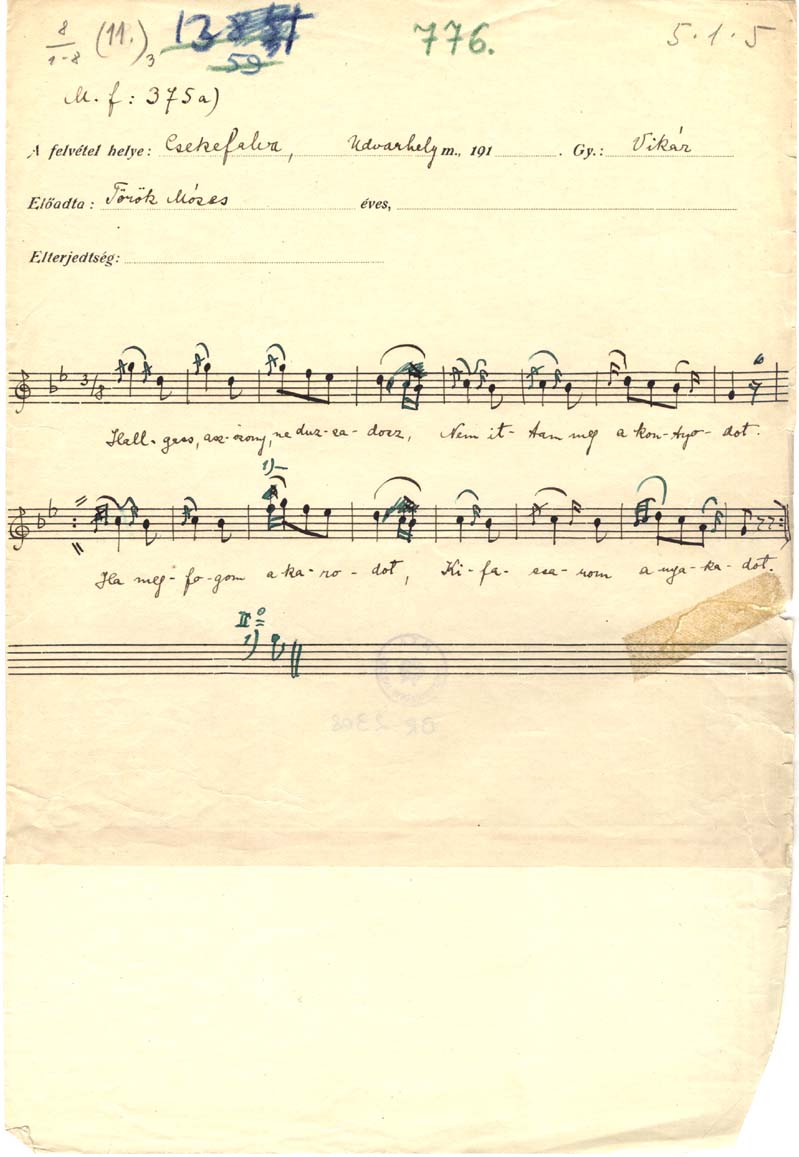 8/1-8 (11.)3 59 776. 5·1·5
M. f: 375a)
A felvétel helye: Csekefalva, Udvarhely m., 191 . Gy.: Vikár
Előadta: Török Mózes éves,
Elterjedtség:
3/8 6
Hall-gass, asz-szony, ne duz-za-dozz, Nem it-tam meg a kon-tyo-dot.
1)
Ha meg-fo-gom a ka-ro-dot, Ki-fa-csa-rom a nya-ka-dot.
II°
1)